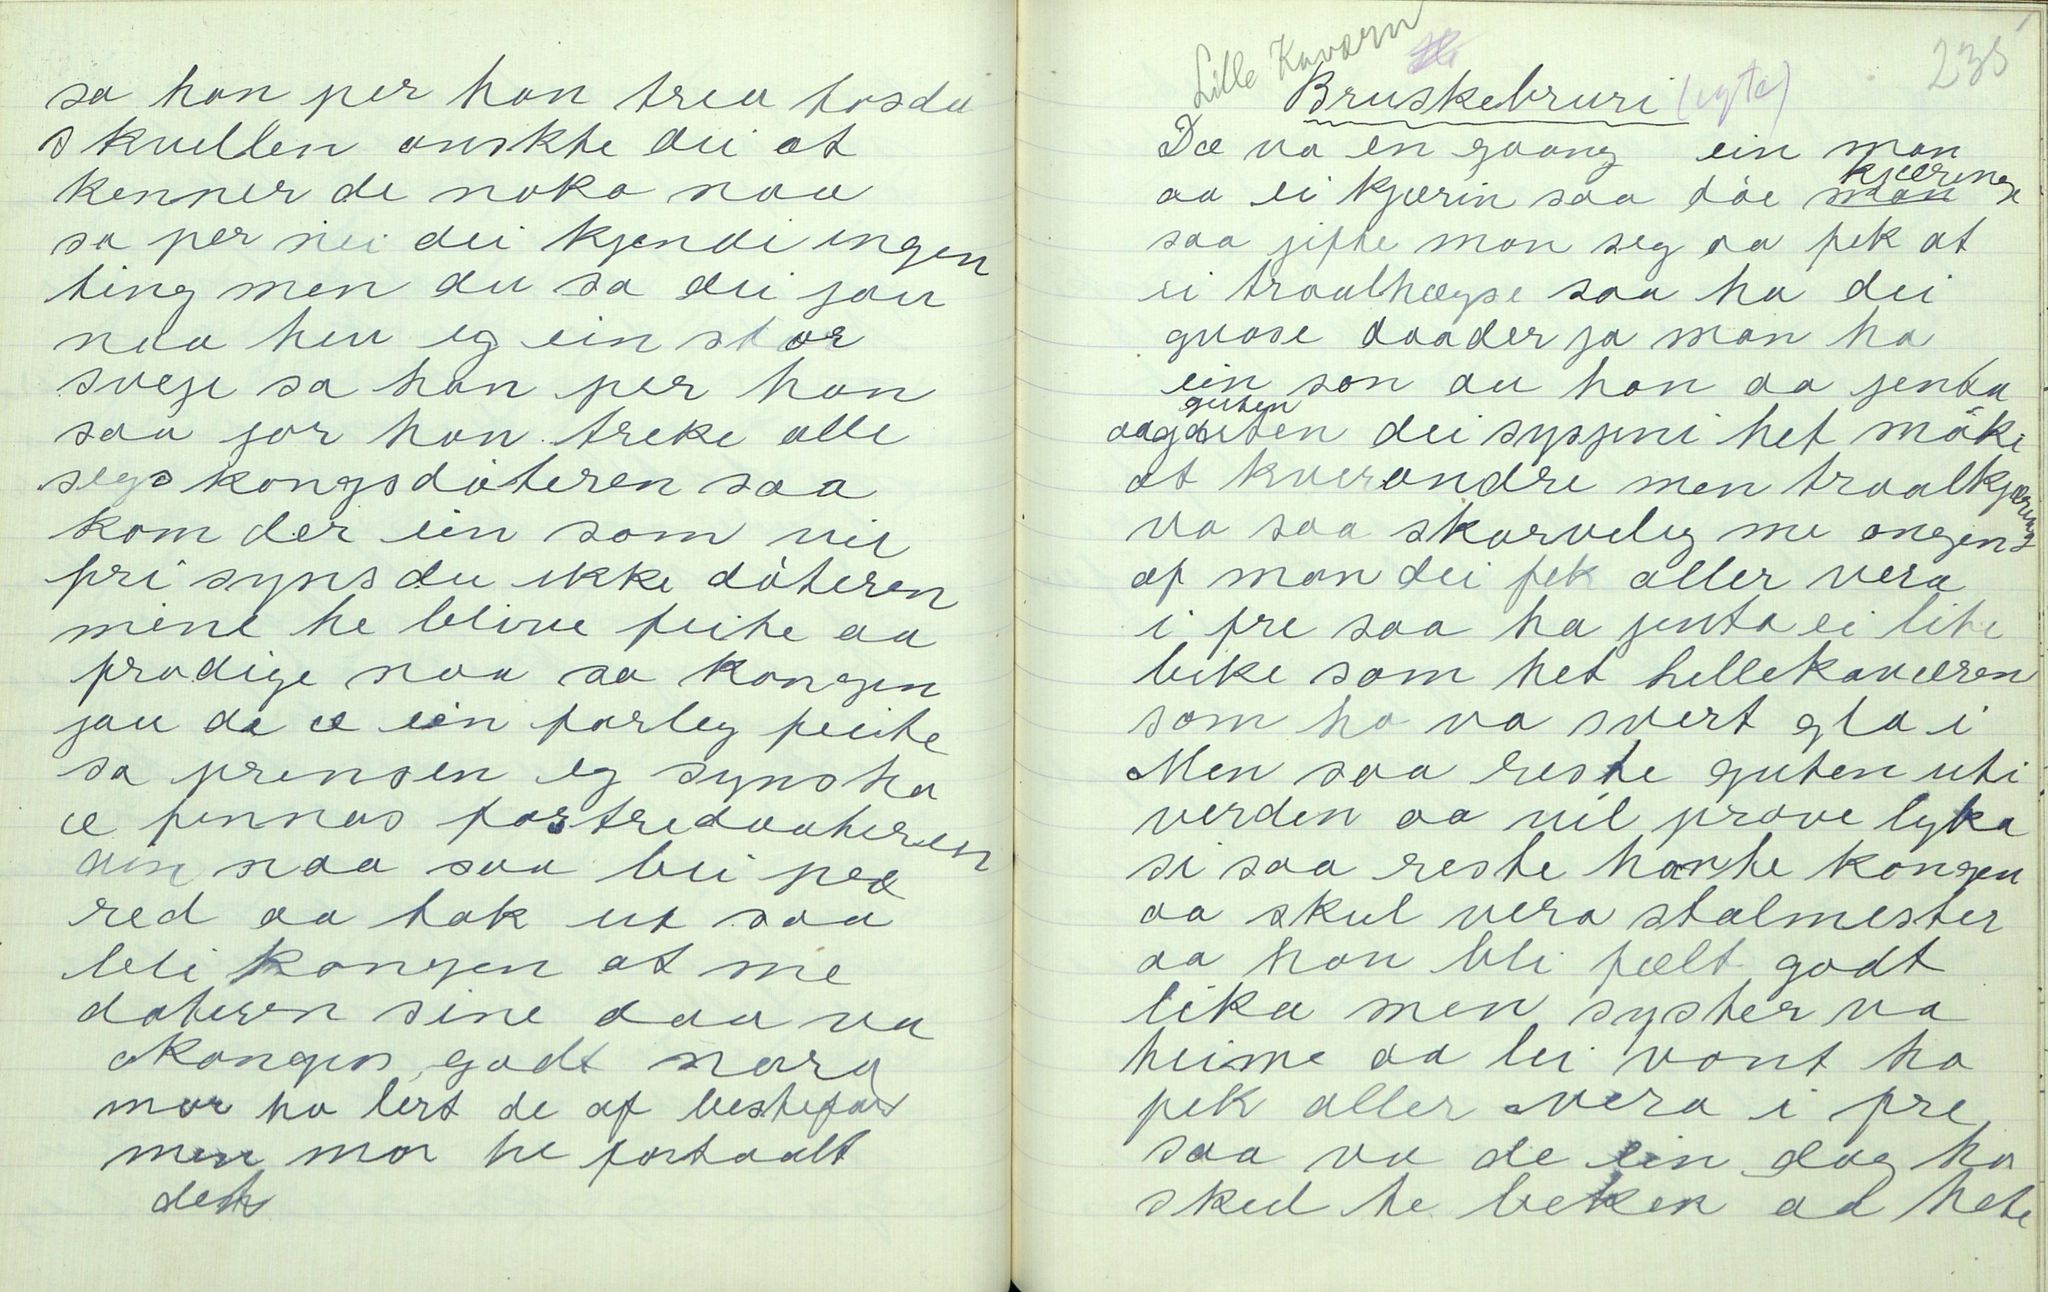 sa han per han trea tosda
skvellen onskte dei at
kenner de noko naa
sa per nei dei kjende ingen
ting men du sa dei jau
naa heu eg ein stor
sveje sa han per han
saa jor han treke alle
segs kongsdòteren saa
kom der ein som vil
fri syns du ikke dòteren
mine he blive feite aa
frodige naa sa kongen
jau da æ ein farleg feite
sa prensen eg syns ha
æ finnas for tredaateren
din naa saa blei pee
red aa tok ut saa
blei kongen at me
doteren sine daa va
kongen godt nara
mor ha lert de af bestefar
men mor he fortaalt
det
Lille Kaværn
238
Bruskebruri
Dæ va en gaang ein man
kjæringe
aa ei kjærin saa dòe man
saa jifte man seg aa fek at
ei traalhægse saa ha dei
gvase daader ja man ha
ein son au han aa jenta
guten
aa guten dei sysjeni het mòki
at kverandre men traalkjæringe
va saa skarveleg me ongene
af man dei fek aller vera
i fre saa ha jenta ei lite
bike som het hellekaværen
som ho va svert gla i
Men saa reste guten uti
verden aa vil prove lyka
si saa reste han te kongen
aa skul vera stalmester
aa han bli fælt godt
lika men syster va
heime aa lei vont ho
fek aller vera i fre
saa va de ein dag ho
skul te bekken ad hete